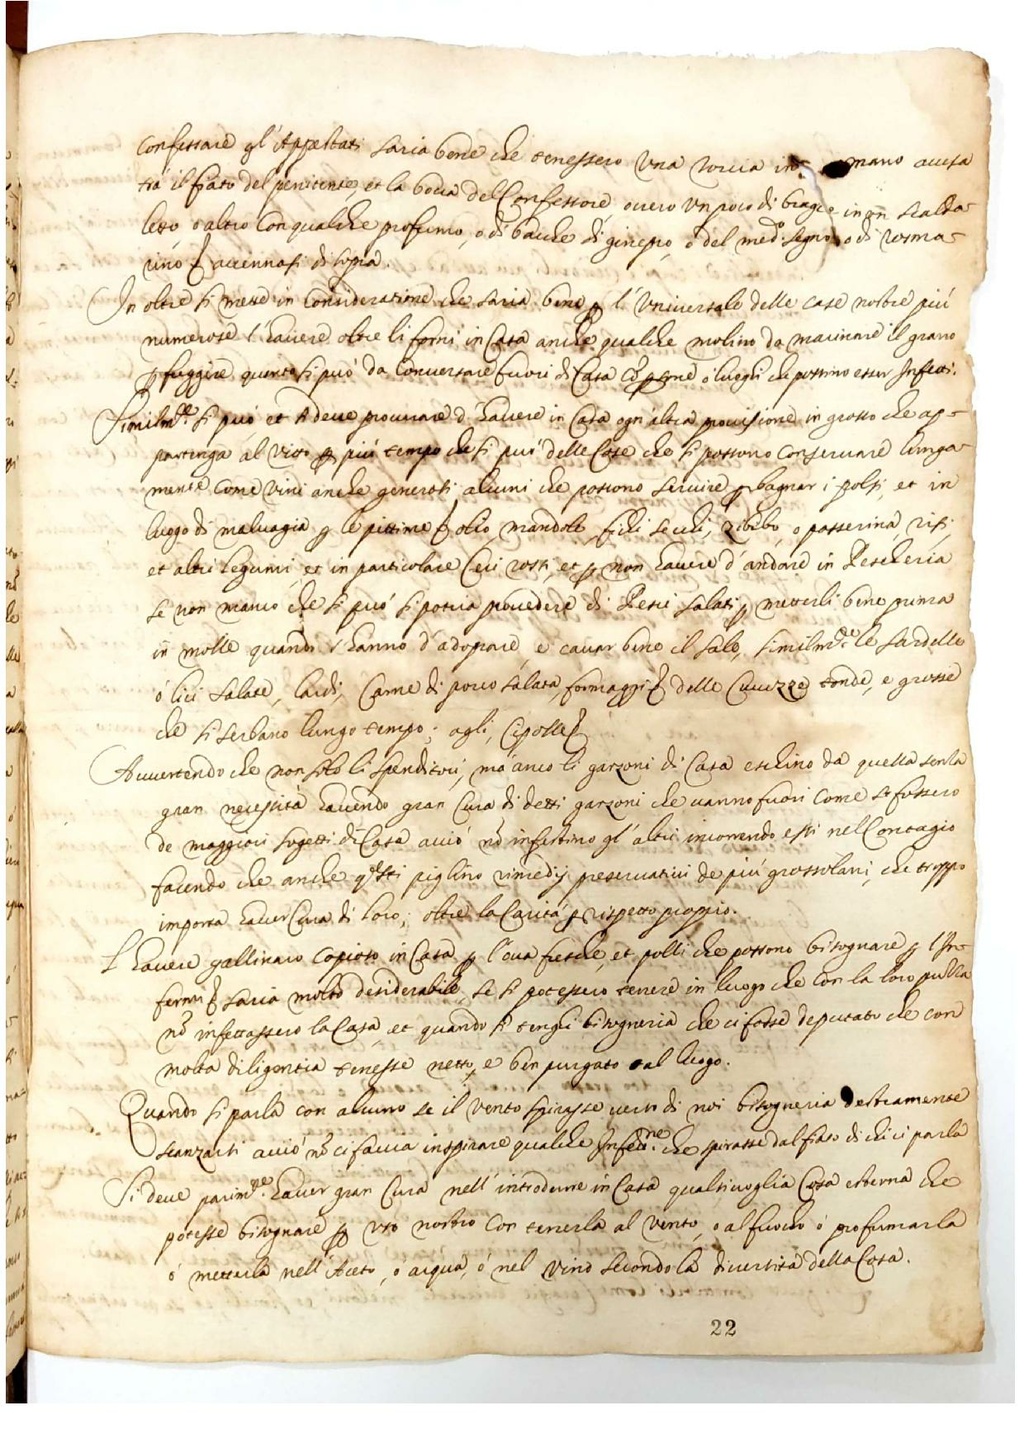 Confessare gl'Appestati saria bene che tenessero una torcia in mano accesa
trà il fiato del penitente, et la bocca del Confessore, overo un poco di bragie in un scalda
letto, ò altro con qualche profumo, ò di bacche di ginepro, ò del med.o legno, o di rosma-
rino & accennasi di sopra.
In oltre si messe in consideratione che saria bene p l'universale delle case nostre più
numerose l'havere oltre li forni in Casa anche qualche molino da macinare il grano
p fuggire quanto si può da conversare fuori di Casa cō psone ò luoghi che possino esser Infetti.
Similm.te si può et si deve procurare d'havere in Casa ogn'altra provisione in grosso che ap-
partenga al vitto p più tempo che si può delle Cose che si possono conservare lunga-
mente come vini anche generosi alcuni che possono servire p bagnar i polsi, et in
luogo di malvagia p le pittime & olio, mandole, fichi secchi, zibibo, o passerina, risi,
et altri legumi, et in particolare Ceci rossi, et p non havere d'andare in Pescheria
se non manco che si può si potria provedere di Pesci salati p metterli bene prima
in molle quando s'hanno d'adoprare, e cavar bene il sale, similm.te le sardelle
ò lici salate, lardi, Carne di porco salata, formaggi & delle Cucuzze tonde, e grosse
che si serbano lungo tempo; agli, Cipolle &
Avvertendo che non solo li spenditori, mà anco li garzoni di Casa eschino da quella senza
gran necessità havendo gran Cura di detti garzoni che vanno fuori come se fossero
de maggiori sogetti di Casa acciò nō infettino gl'altri incorrendo essi nel Contagio
facendo che anche q.sti piglino rimedij preservativi de più grossolani, che troppo
importa haver Cura di loro, oltre la Carità p rispetto proprio.
L'havere gallinaro copioso in Casa p l'ova fresche, et polli che possono bisognare p l'In-
fermi & saria molto desiderabile, se si potessero tenere in luogo che con la loro puzza
nō infettassero la Casa, et quando si tenghi bisogneria che ci fosse deputato che con
molta diligentia tenesse netto, e ben purgato tal luogo.
Quando si parla con alcuno se il vento spirasse verso di noi bisogneria destramente
scanzarsi acciò nō ci faccia inspirare qualche Infett.ne che spirasse dal fiato di chi ci parla
Si deve parim.te haver gran Cura nell'introdurre in Casa qualsivoglia Cosa esterna che
potesse bisognare p uso nostro con tenerla al vento, o al fuoco ò profumarla
ò metterla nell'Aceto, o acqua, ò nel vino secondo la diversità della Cosa.
22